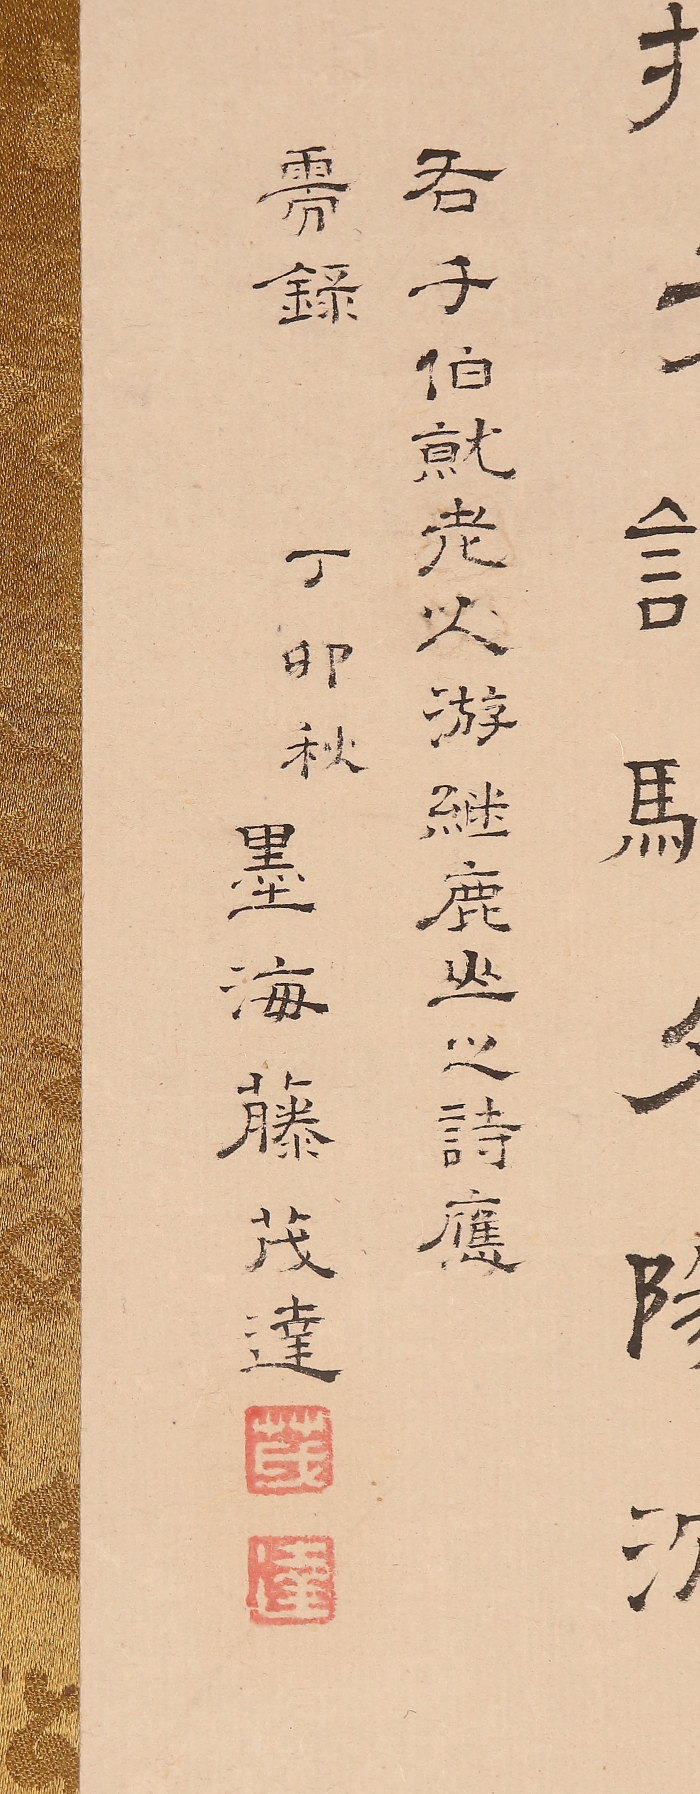 言馬夕陽沈
吞子伯就老以游継鹿坐之詩應
需録 丁卯秋 墨海藤茂達
茂
達